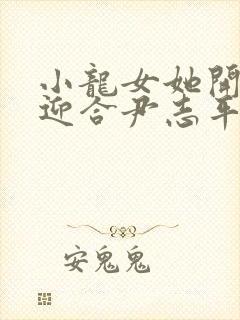 小龍女她開
迎合尹志平
安鬼鬼